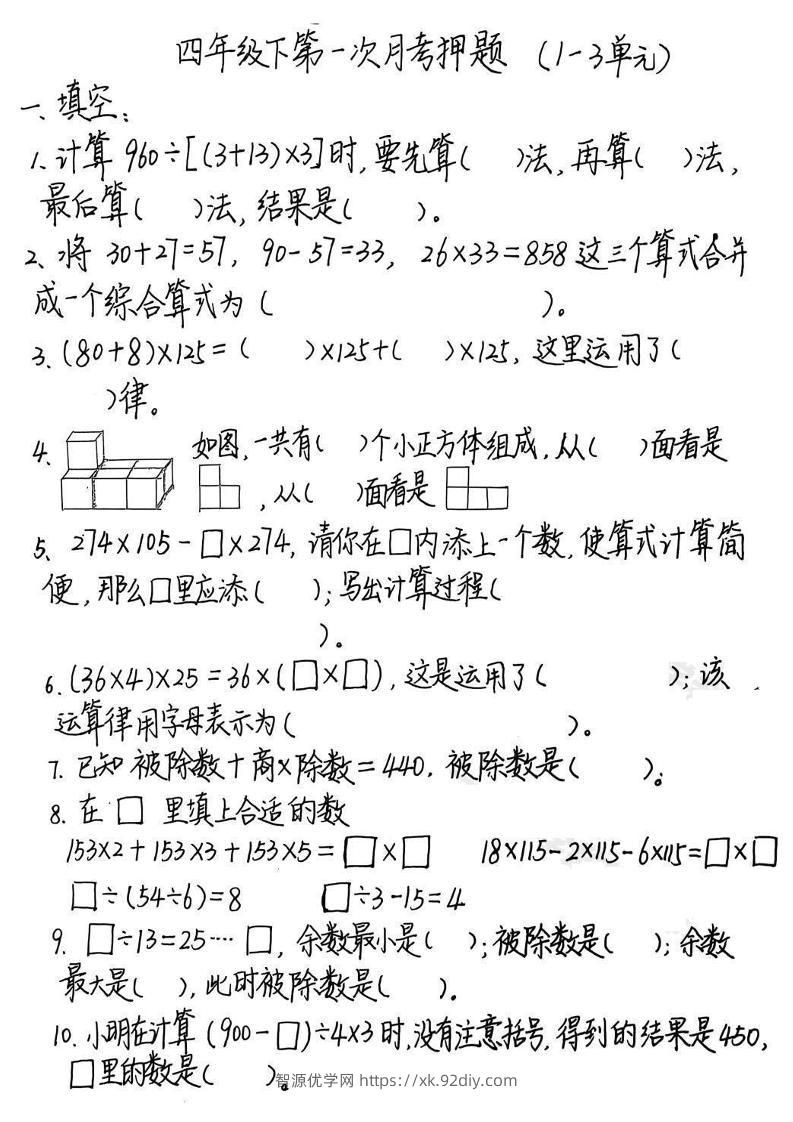 四年级下第一次月考押题 (1-3单元)
一、填空:
1、计算 960÷[(3+13)×3]时,要先算( )法,再算( )法,
最后算( )法,结果是( )。
2、将 30+27=57, 90-57=33, 26×33=858 这三个算式合并
成一个综合算式为( )。
3、(80+8)×125=( )×125+( )×125, 这里运用了(
)律。
4、 如图,一共有( )个小正方体组成,从( )面看是
,从( )面看是
5、274×105-□×274, 请你在□内添上一个数,使算式计算简
便,那么□里应添( );写出计算过程(
)。
6.(36×4)×25=36×(□×□), 这是运用了( );该
运算律用字母表示为( )。
7. 已知 被除数+商×除数=440, 被除数是( )。
8. 在 □ 里填上合适的数
153×2+153×3+153×5=□×□ 18×115-2×115-6×115=□×□
□÷(54÷6)=8 □÷3-15=4
9. □÷13=25····□, 余数最小是( );被除数是( );余数
最大是( ),此时被除数是( )。
10. 小明在计算 (900-□)÷4×3 时,没有注意括号,得到的结果是450,
□里的数是( )。
智源优学网 https://xk.92diy.com